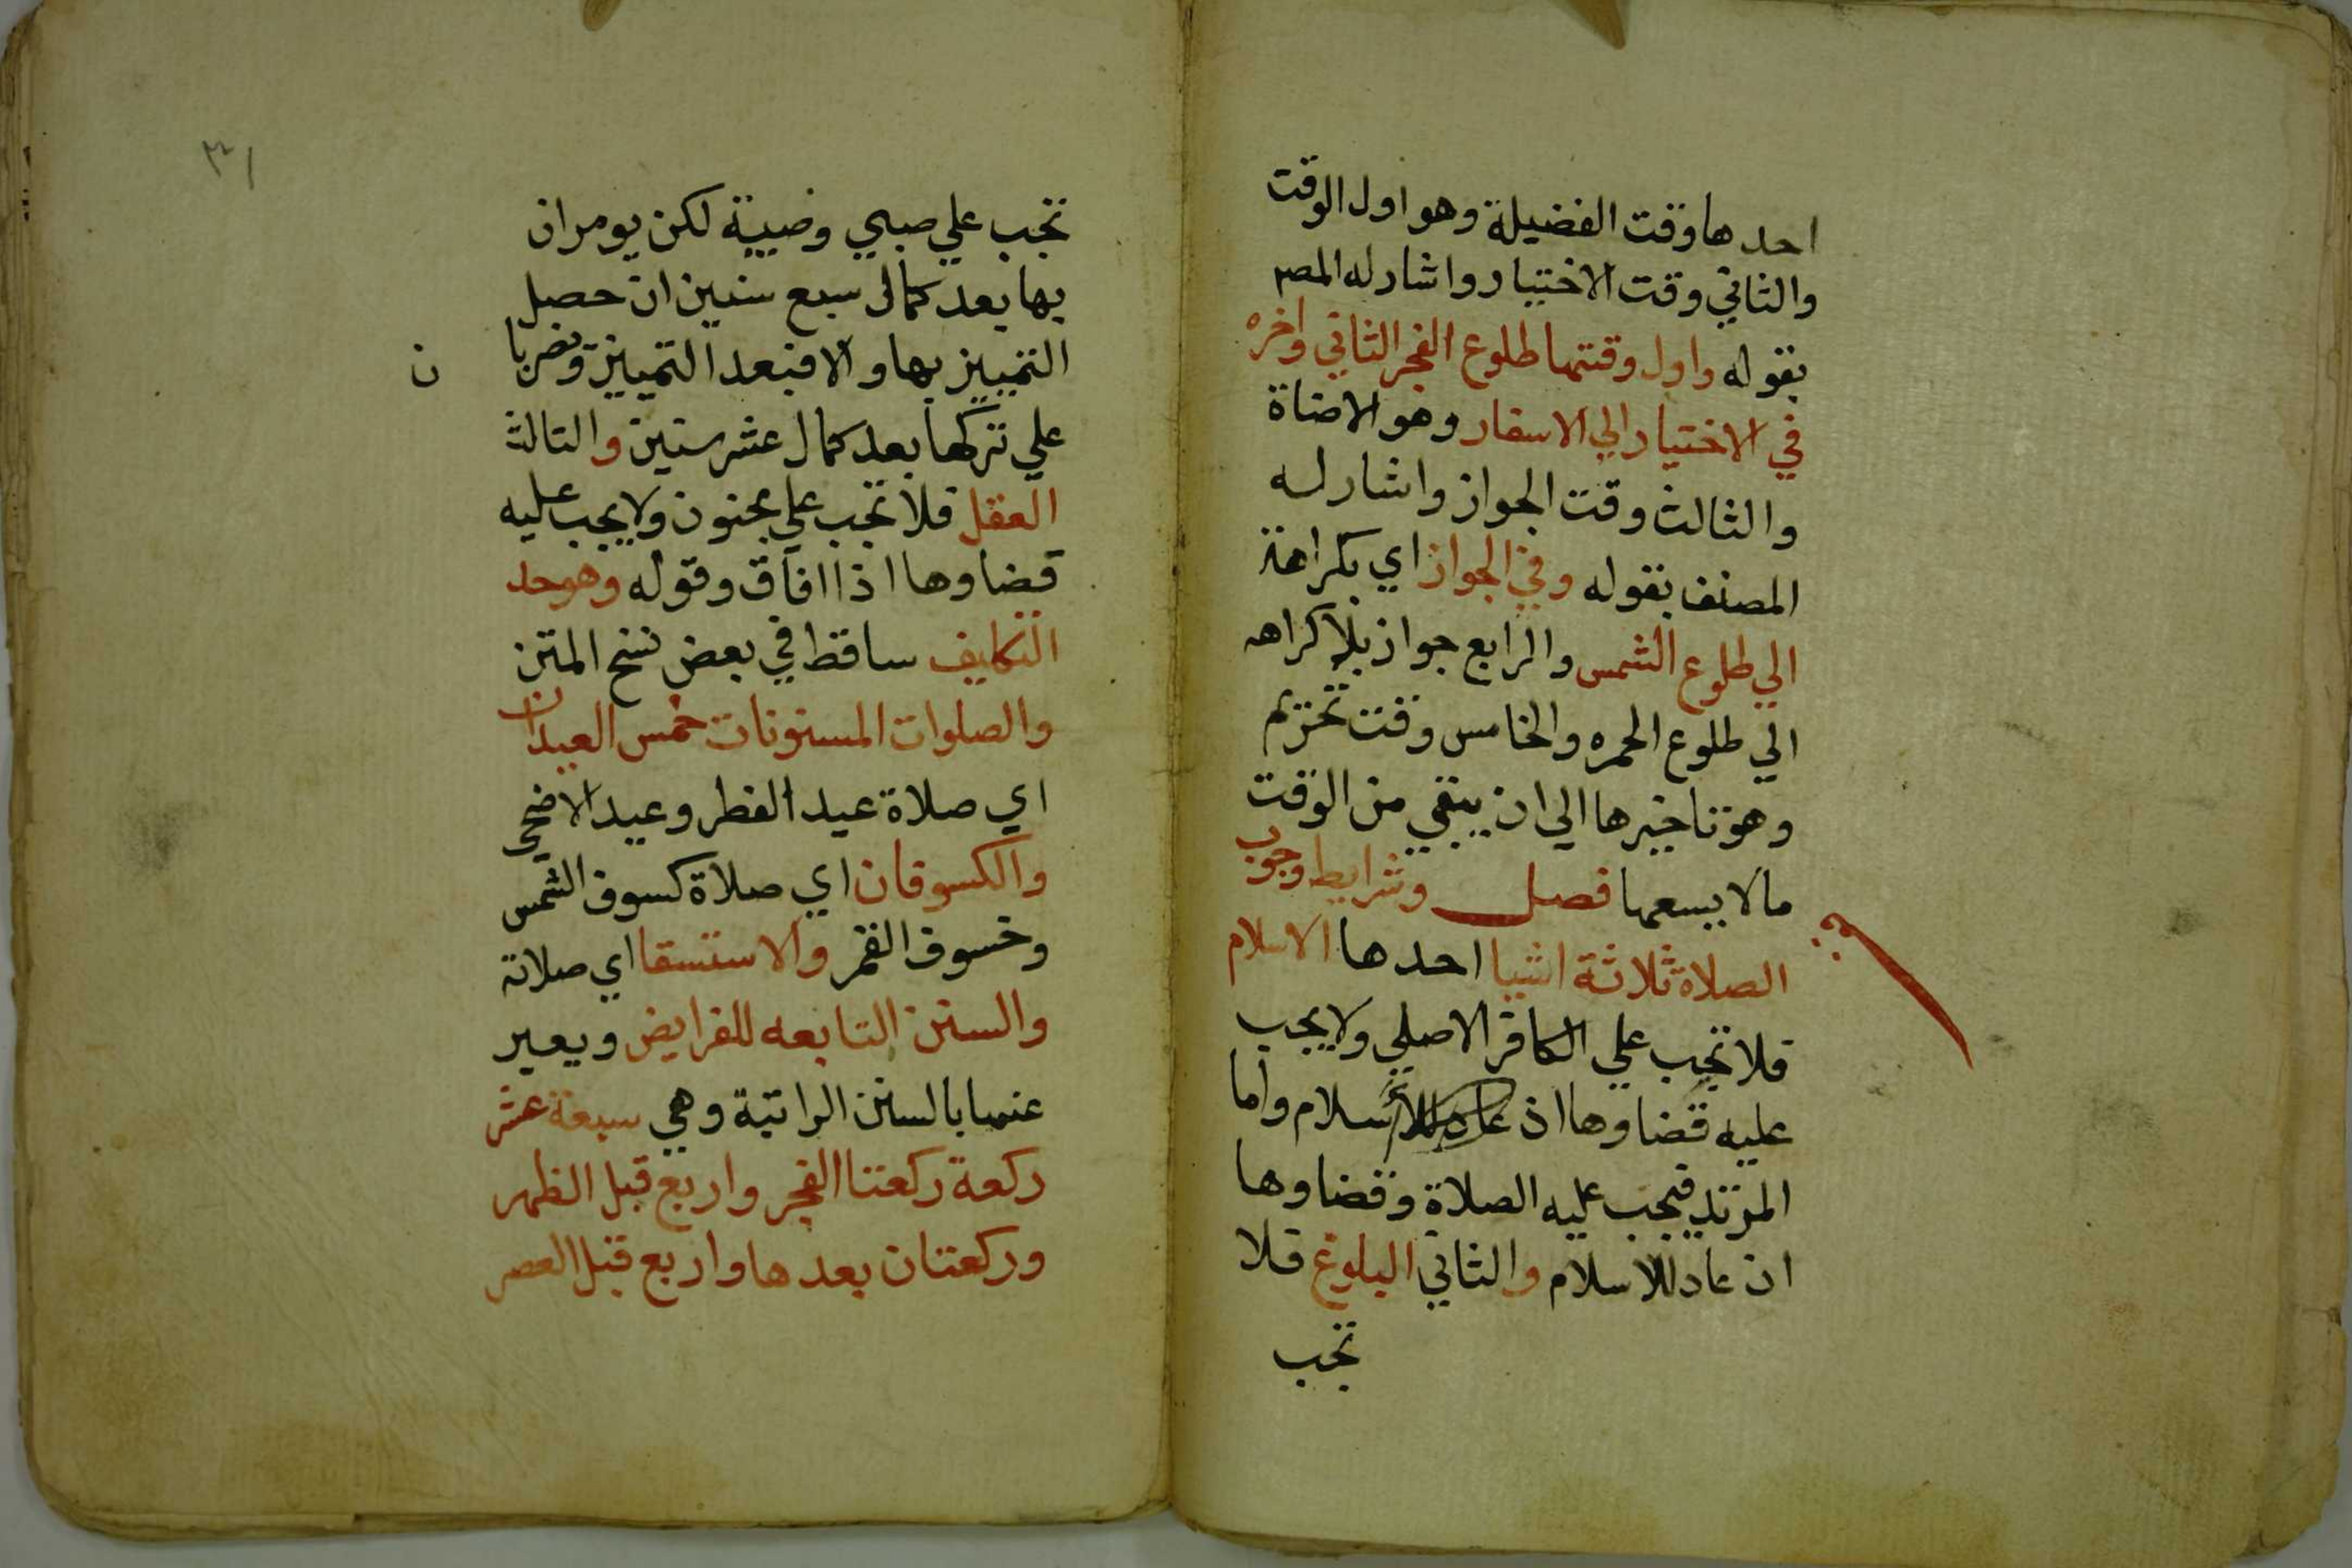 احدها وقت الفضيلة وهو اول الوقت
والثاني وقت الاختيار واشار له المصر
بقوله واول وقتها طلوع الفجر الثاني واخره
في الاختيار الي الاسفار وهو الاضاة
والثالث وقت الجواز واشار له
المصنف بقوله وفي الجواز اي بكراهة
الي طلوع الشمس والرابع جواز بلا كراهه
الي طلوع الحمره والخامس وقت تحريم
وهو تاخيرها الي ان يبقي من الوقت
ما لا يسعها فصل وشرايط وجوب
الصلاة ثلاثة اشيا احدها الاسلام
فلا تجب علي الكافر الاصلي ولا يجب
عليه قضاوها اذ سلام واما
المرتد فيجب عليه الصلاة وقضاوها
ان عاد للاسلام والثاني البلوغ فلا
تجب
٣١
تجب علي صبي وصبية لكن يومران
بها بعد كمال سبع سنين ان حصل
التمييز بها والا فبعد التمييز ويضربا
ن
علي تركها بعد كمال عشر سنين والثالث
العقل فلا تجب علي مجنون ولا يجب عليه
قضاوها اذا افاق وقوله وهو حد
التكليف ساقط في بعض نسخ المتن
والصلوات المسنونات خمس العيدان
اي صلاة عيد الفطر وعيد الاضحي
والكسوفان اي صلاة كسوف الشمس
وخسوف القمر والاستسقا اي صلاته
والسنن التابعه للفرايض ويعبر
عنها بالسنن الراتبة وهي سبعة عشر
ركعة ركعتا الفجر واربع قبل الظهر
وركعتان بعدها واربع قبل العصر